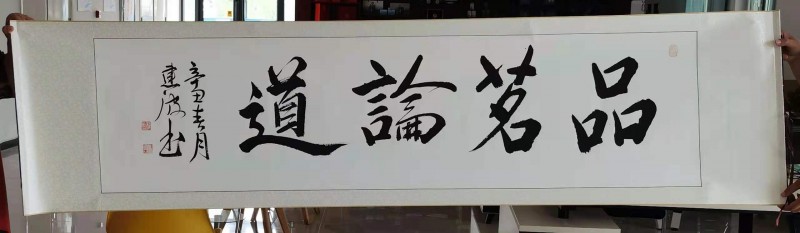 品茗論道
辛丑春月
建波书